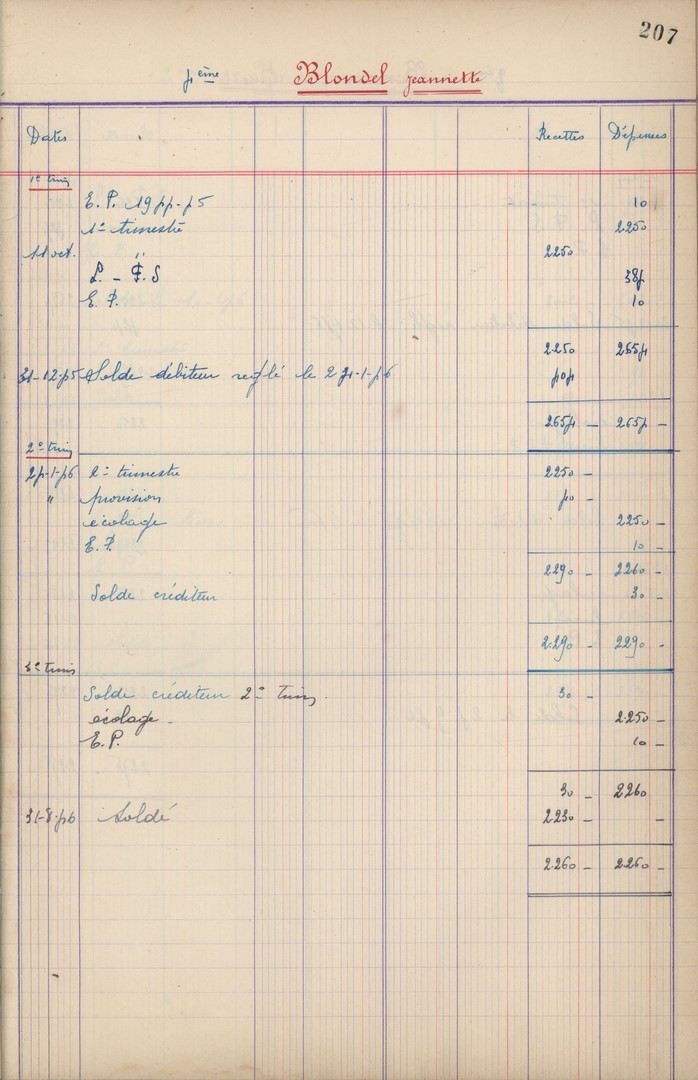 207
4ème Blondel Jeannette
Dates Recettes Dépenses
1e trim
E. P. 1944-45 10
1e trimestre 2250
11 oct. " 2250
L. - F. S 384
E. P. 10
2.250 2654
31-12-45 Solde débiteur reglé le 24-1-46 404
2654 - 2654 -
2e trim
24-1-46 2e trimestre 2250 -
" provision 40 -
écolage 2250 -
E. P. 10 -
2290 - 2260 -
Solde créditeur 30 -
2.290 - 2290 -
3e trim
Solde créditeur 2e trim. 30 -
écolage - 2.250 -
E.P. 10 -
30 - 2260
31-8-46 Soldé 2230 - -
2.260 - 2.260 -